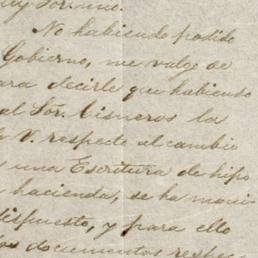 muy Sor. mio.
No habiendo podido
Gobierno, me valgo de
para decirle que habiendo
al Sor. Cisneros la
V. respecto al cambio
una Escritura de hipo
hacienda, se ha mani
dispuesto, y para ello
los documentos respec